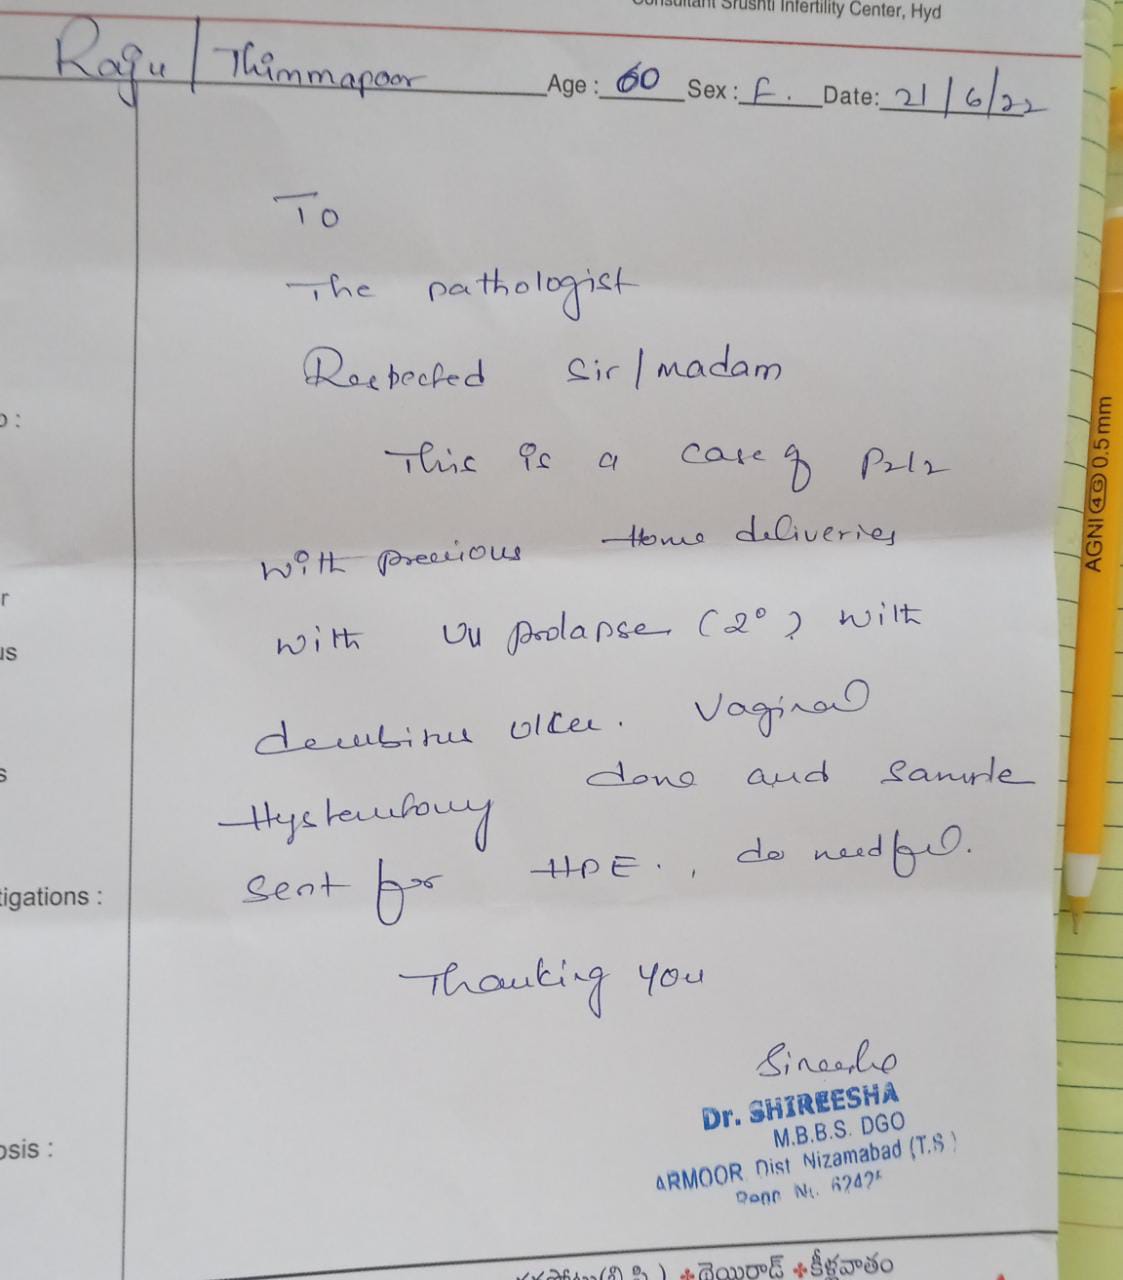 Consultant Srushti Infertility Center, Hyd
Ragu / Thimmapoor Age : 60 Sex : F. Date: 21/6/22
To
The pathologist
Respected Sir / madam
This is a case of P2L2
with previous Home deliveries
with UV prolapse (2°) with
decubitus ulcer. Vaginal
Hysterectomy done and sample
sent for HPE., do needful.
Thanking you
Sireesha
Dr. SHIREESHA
M.B.B.S. DGO
ARMOOR Dist Nizamabad (T.S)
tigations :
osis :
డెయిరాడ్ కీళ్లవాతం
AGNI 4G 0.5 mm